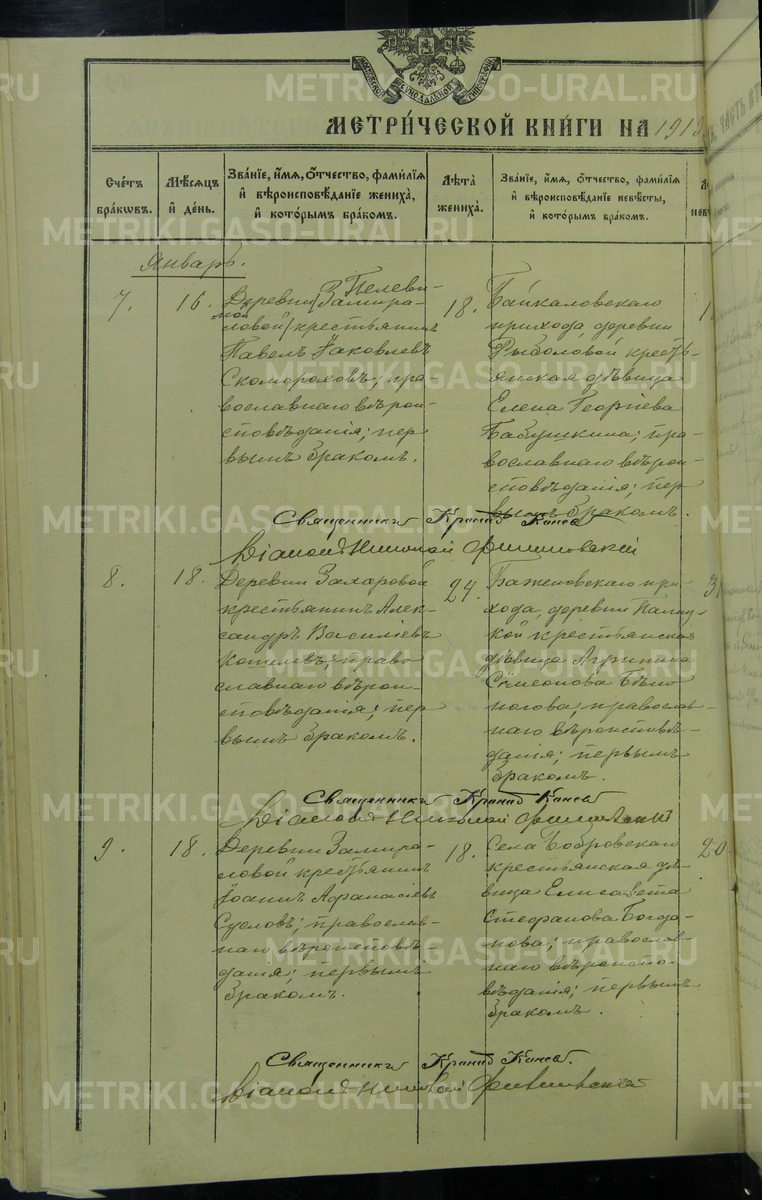 МЕТРИЧЕСКОЙ КНИГИ НА 1913
Счетъ браковъ.
Мѣсяцъ и день.
Званіе, имя, отчество, фамилія и вѣроисповѣданіе жениха, и которымъ бракомъ.
Лѣта жениха.
Званіе, имя, отчество, фамилія и вѣроисповѣданіе невѣсты, и которымъ бракомъ.
Январь.
7.
16.
Деревни Пелеви-
ной (Замира-
ловой) крестьянинъ
Павелъ Яковлевъ
Скомороховъ; пра-
вославнаго вѣрои-
сповѣданія; пер
вымъ бракомъ.
18.
Байкаловскаго
прихода, деревни
Рыболовой кресть-
янская дѣвица
Елена Георгіева
Бабушкина; пра-
вославнаго вѣрои-
сповѣданія; пер
вымъ бракомъ.
Священникъ
Діаконъ Николай
8.
18.
Деревни Заларовой
крестьянинъ Алек-
сандръ Василіевъ
право
славнаго вѣрои-
сповѣданія; пер
вымъ бракомъ.
24.
Баженовскаго при-
хода, деревни
кой крестьянская
дѣвица Агрипина
Сѵмеонова Бѣло
ногова; православ-
наго вѣроисповѣ-
данія; первымъ
бракомъ.
Священникъ
Діаконъ Николай
9.
18.
Деревни Замира-
ловой крестьянинъ
Іоаннъ Афанасіевъ
Сусловъ; православ-
наго вѣроисповѣ-
данія; первымъ
бракомъ.
18.
Села Бобровскаго
крестьянская дѣ-
вица Елисавета
Стефанова Богда-
нова; православ-
наго вѣроиспо-
вѣданія; первымъ
бракомъ.
20.
Священникъ
Діаконъ Николай
METRIKI.GASO-URAL.RU